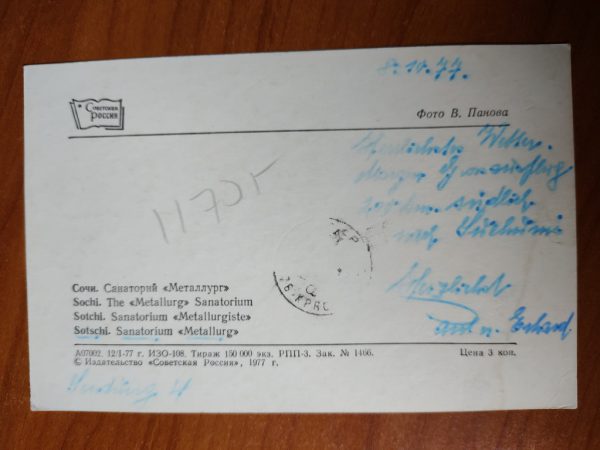 8.10.77.
Советская
Россия
Фото В. Панова
Herrliches Wetter.
Morgen
südlich
nach Suchumi
Herzlichst
u.
1170r
Сочи. Санаторий «Металлург»
Sochi. The «Metallurg» Sanatorium
Sotchi. Sanatorium «Metallurgiste»
Sotschi. Sanatorium «Metallurg»
А07002. 12/I-77 г. ИЗО-108. Тираж 150 000 экз. РПП-3. Зак. № 1466. Цена 3 коп.
© Издательство «Советская Россия», 1977 г.